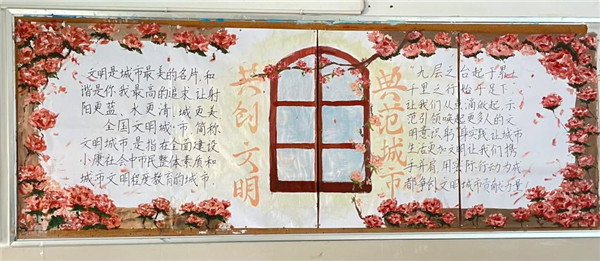 文明是城市最美的名片,和
谐是你我最高的追求,让
阳更蓝、水更清,城更美
全国文明城市,简称
文明城市,是指在全面建设
小康社会中市民整体素质和
城市文明程度教育的城市.
共创文明
典范城市
九层之台起于累土
千里之行始于足下
让我们从点滴做起,示
范引领唤起更多人的文
明意识,用实践让城市
生活更加文明让我们携
手并肩,用实际行动为成
都争创文明城市贡献力量!